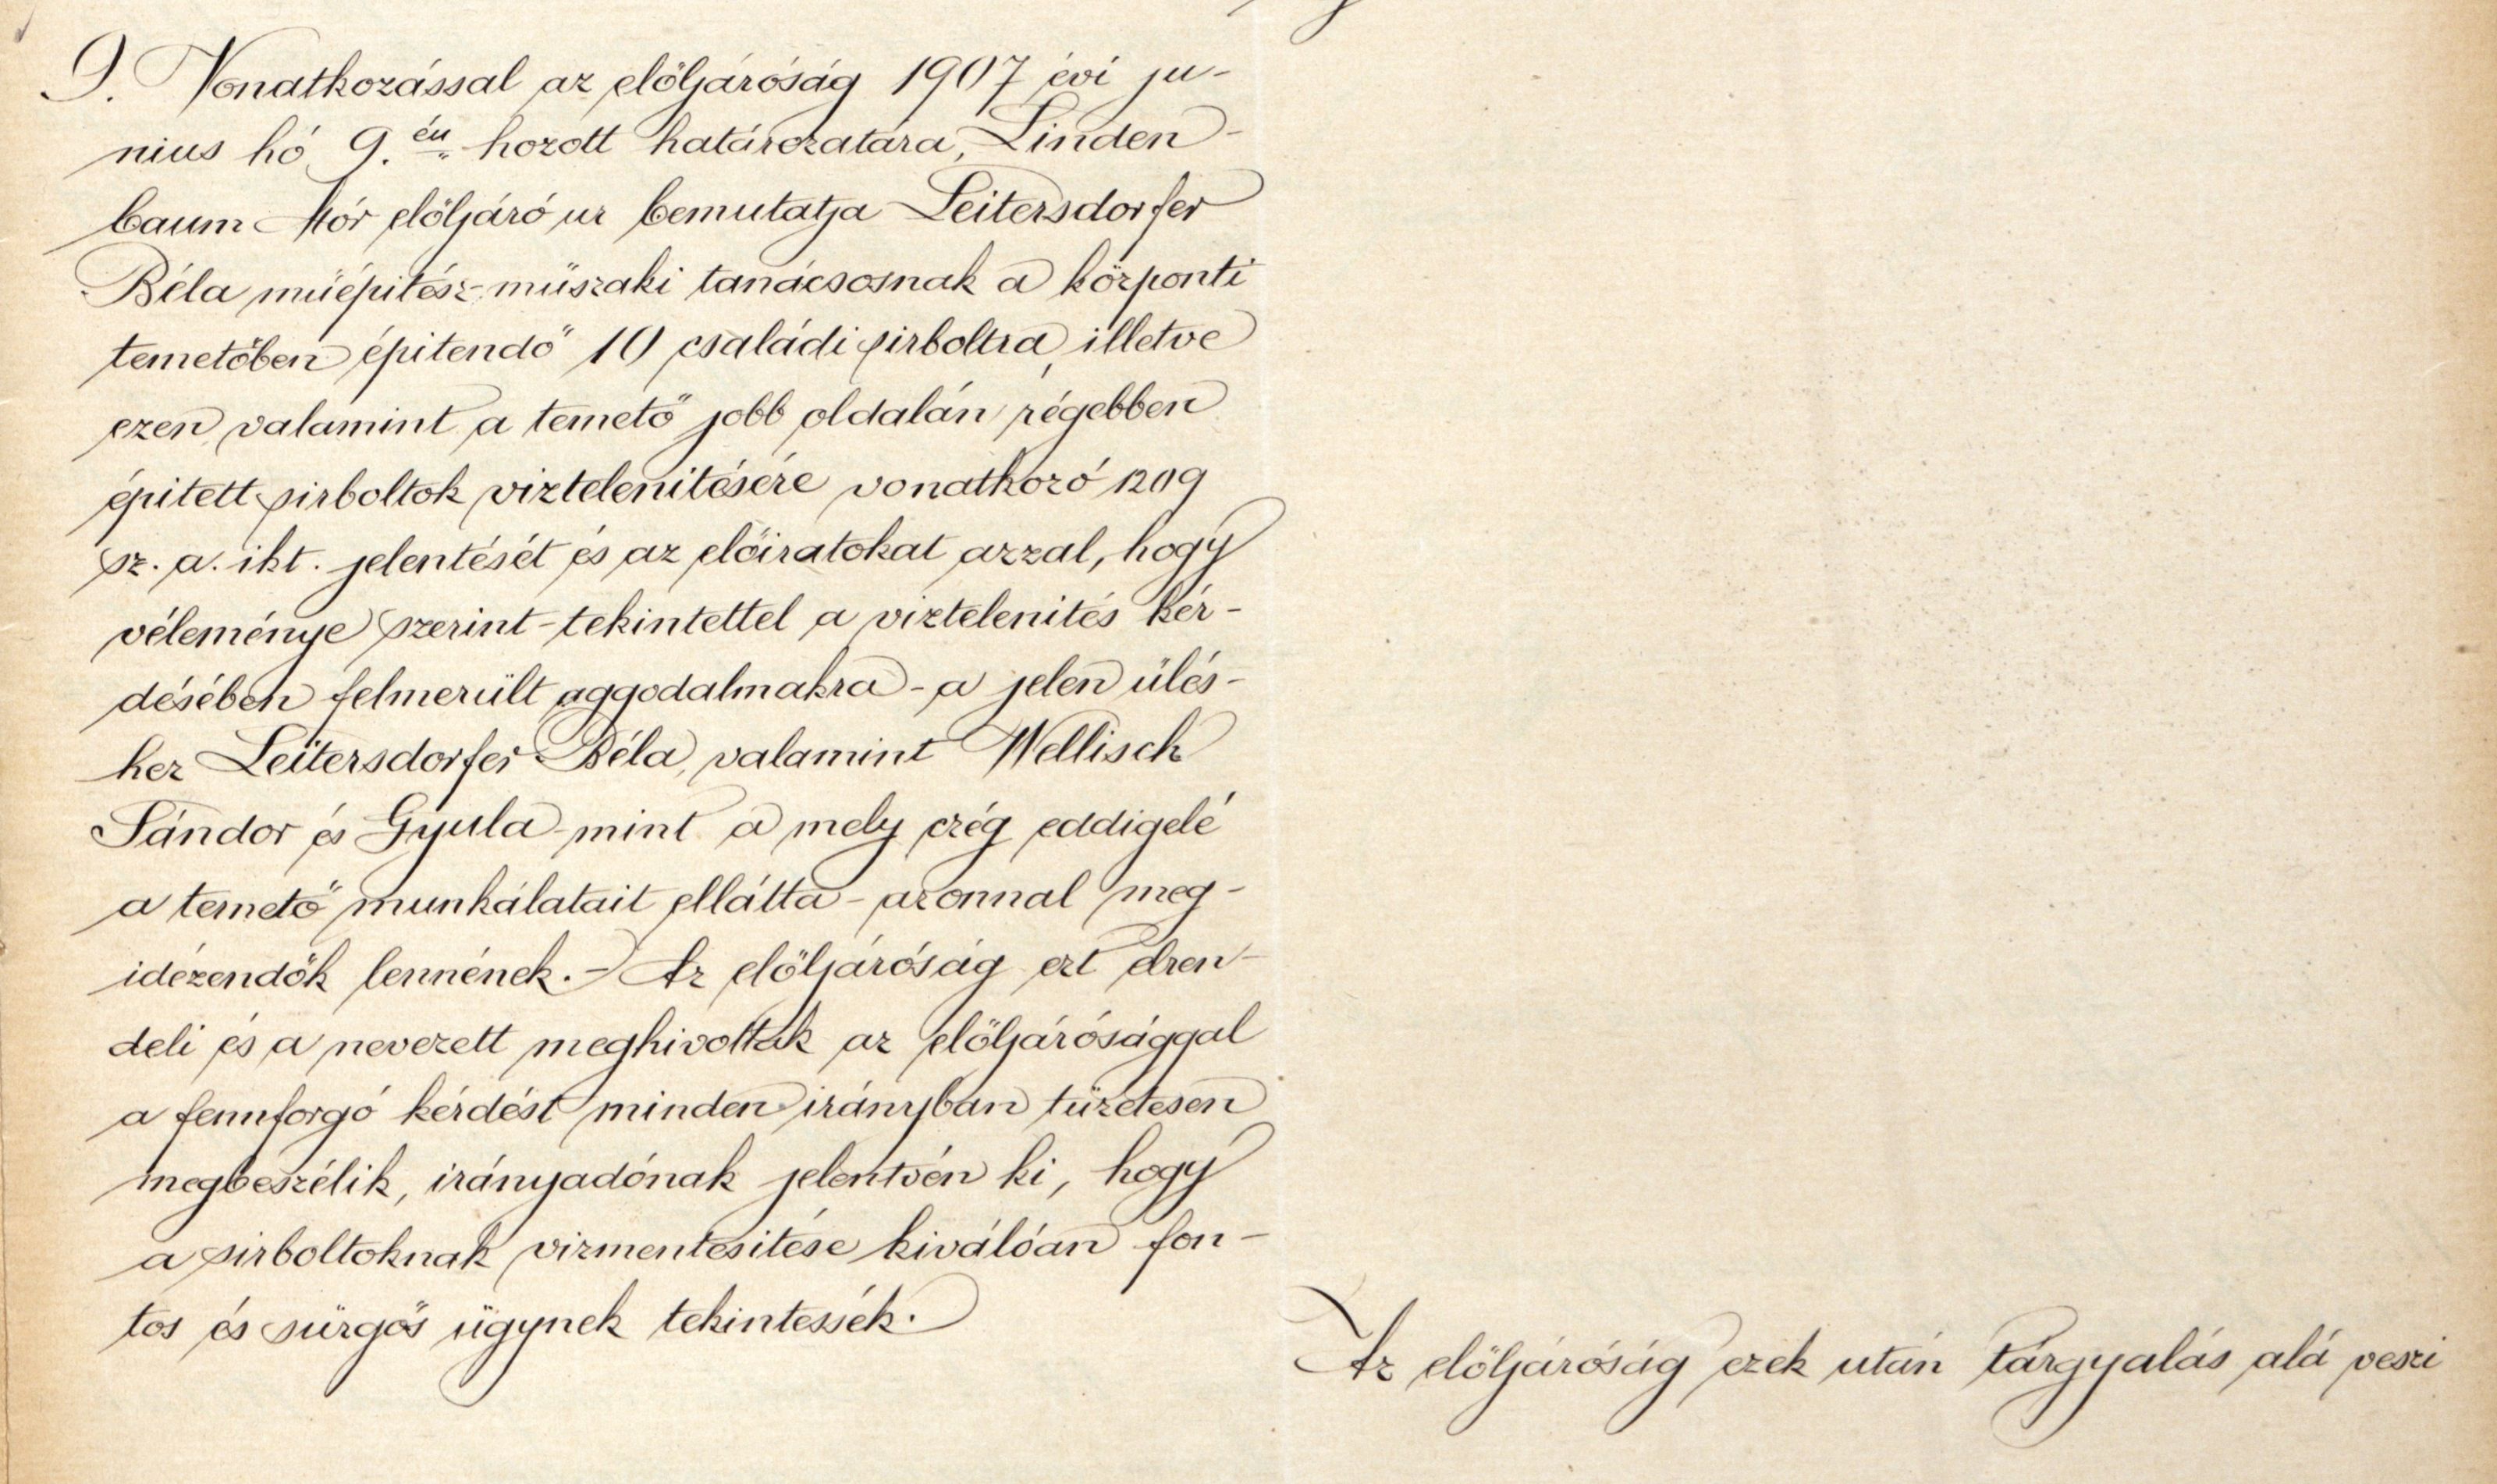 9. Vonatkozással az elöljáróság 1907 évi ju-
nius hó 9.én hozott határozatára, Linden-
baum Mór elöljáró ur bemutatja Leitersdorfer
Béla müépitész-müszaki tanácsosnak a központi
temetőben épitendő 10 családi sirboltra, illetve
ezen, valamint a temető jobb oldalán régebben
épitett sirboltok viztelenitésére vonatkozó 1209
sz. a. ikt. jelentését és az előiratokat azzal, hogy
véleménye szerint-tekintettel a viztelenités kér-
désében felmerült aggodalmakra-a jelen ülés-
hez Leitersdorfer Béla, valamint Wellisch
Sándor és Gyula-mint a mely czég eddigelé
a temető munkálatait ellátta-azonnal meg-
idézendők lennének.- Az elöljáróság ezt elren-
deli és a nevezett meghivottak az elöljárósággal
a fennforgó kérdést minden irányban tüzetesen
megbeszélik, irányadónak jelentvén ki, hogy
a sirboltoknak vizmentesitése kiválóan fon-
tos és sürgős ügynek tekintessék.
Az elöljáróság ezek után tárgyalás alá veszi